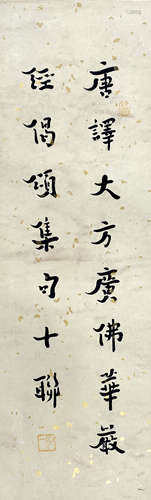 唐譯大方廣佛華嚴
經偈頌集句十聯